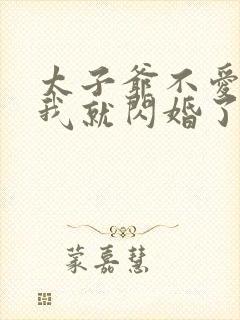 太子爺不愛
我就閃婚了
蒙嘉慧